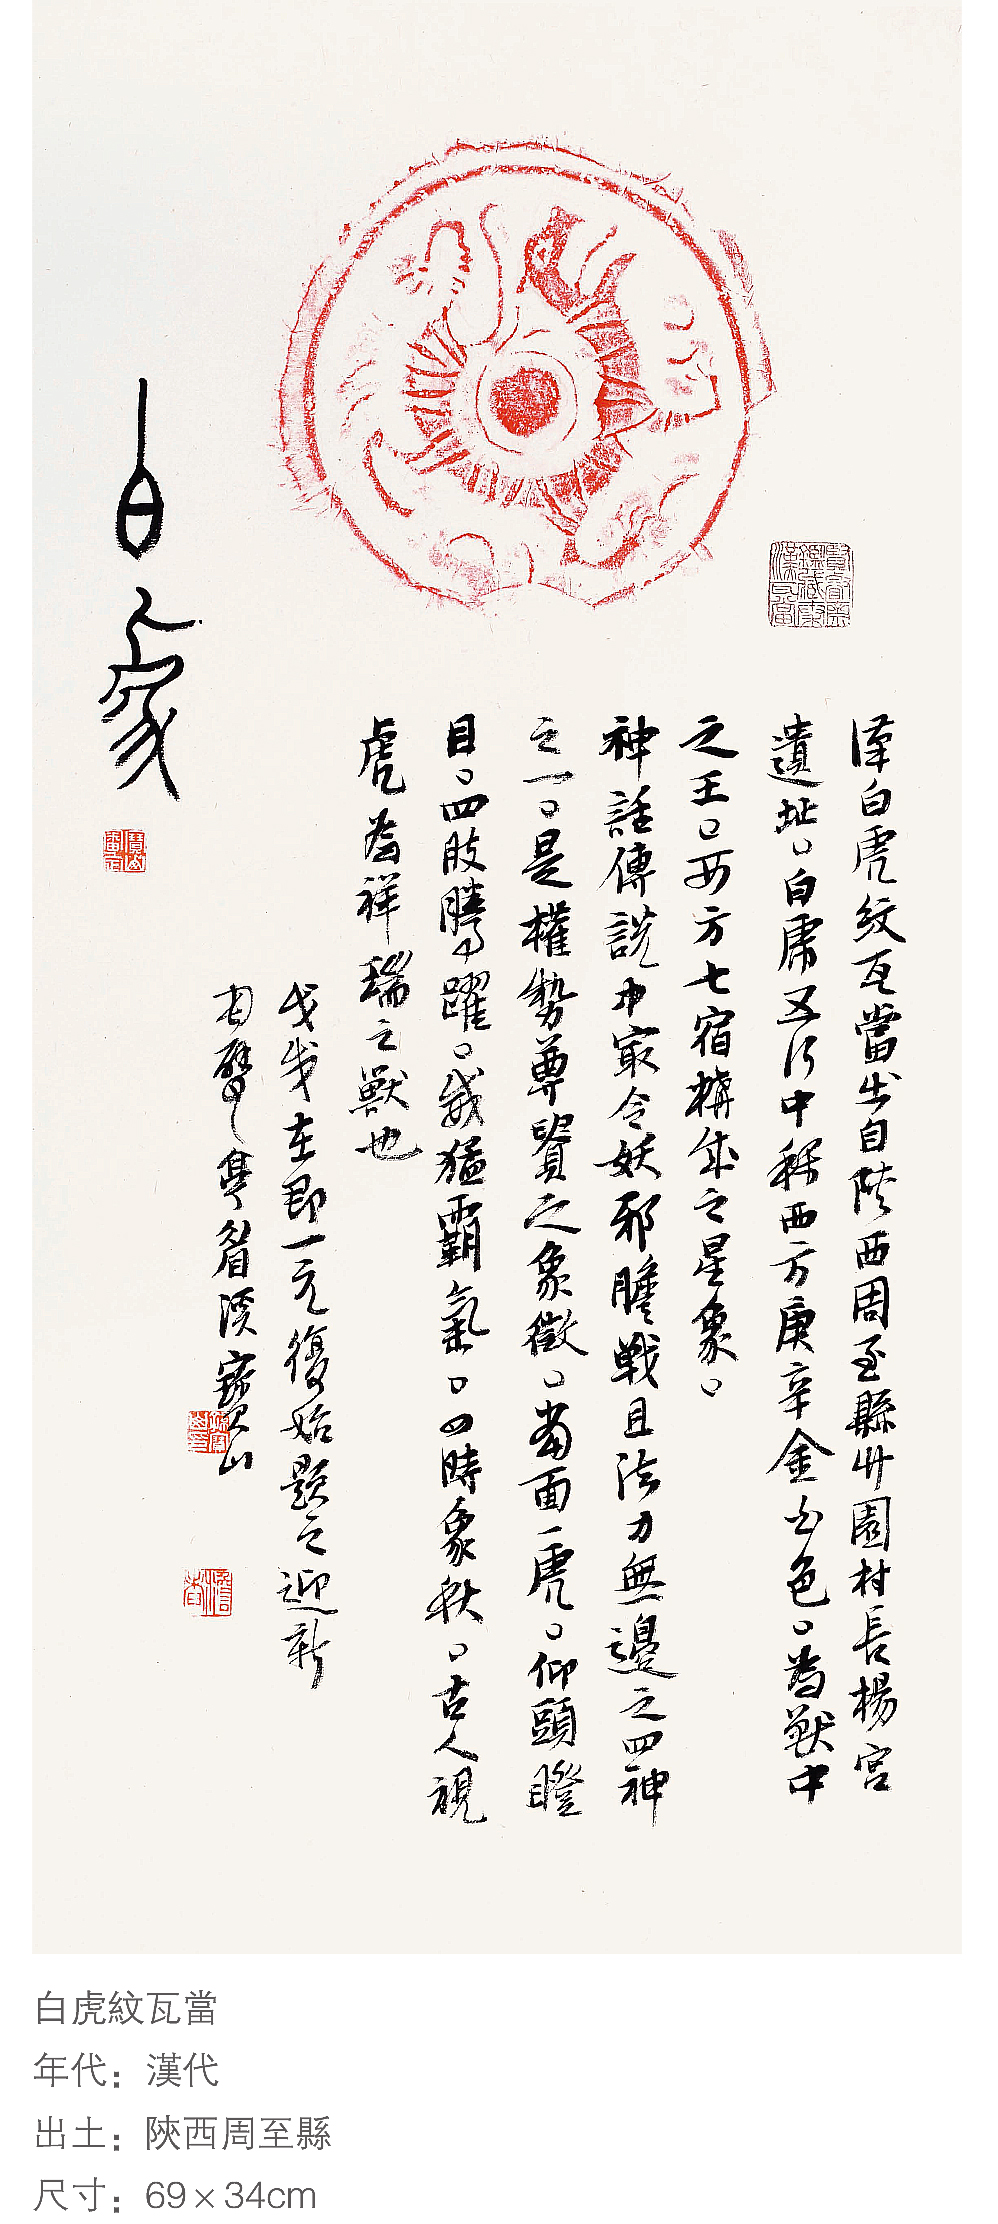 漢白虎紋瓦當出自陝西周至縣竹園村長楊宮
遺址。白虎五行中稱西方庚辛金白色。為獸中
之王。西方七宿構成之星象。
神話傳說中最令妖邪膽戰且法力無邊之四神
之一。是權勢尊貴之象徵。當面一虎。仰頭瞪
目。四肢騰躍。威猛霸氣。四時象秋。古人視
虎為祥瑞之獸也
戊戌在即一元復始題之迎新
寶山
白虎
白虎紋瓦當
年代：漢代
出土：陝西周至縣
尺寸：69×34cm